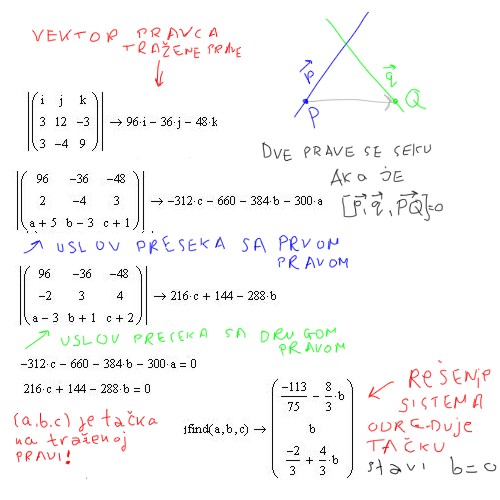 VEKTOR PRAVCA
TRAŽENE PRAVE
|( i j k
3 12 −3
3 −4 9 )| → 96·i − 36·j − 48·k
p⃗
q⃗
P
Q
DVE PRAVE SE SEKU
AKO JE
[p⃗, q⃗, PQ⃗]=0
|( 96 −36 −48
2 −4 3
a + 5 b − 3 c + 1 )| → −312·c − 660 − 384·b − 300·a
USLOV PRESEKA SA PRVOM
PRAVOM
|( 96 −36 −48
−2 3 4
a − 3 b + 1 c + 2 )| → 216·c + 144 − 288·b
USLOV PRESEKA SA DRUGOM
PRAVOM
−312·c − 660 − 384·b − 300·a = 0
216·c + 144 − 288·b = 0
(a,b,c) je tačka
na traženoj
PRAVI!
find(a,b,c) → ( −113/75 − 8/3·b
b
−2/3 + 4/3·b )
REŠENJE
SISTEMA
ODREĐUJE
TAČKU
stavi b=0